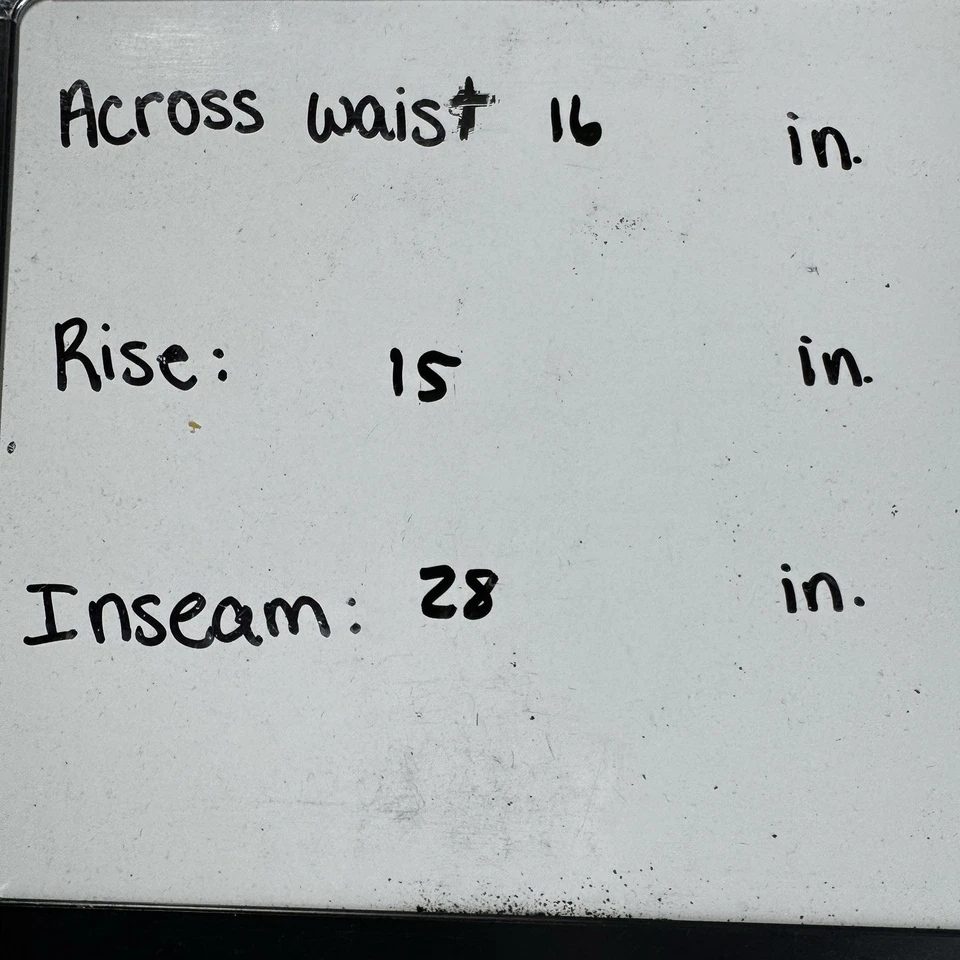 Across waist 16 in.
Rise: 15 in.
Inseam: 28 in.